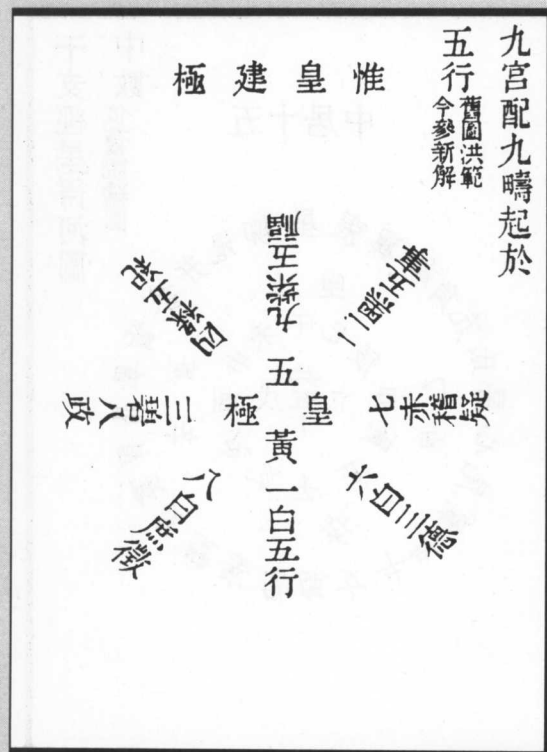 九宮配九疇起於
五行
舊圖洪範
今參新解
惟皇建極
九紫五福
二黑五事
七赤稽疑
六白三德
一白五行
八白庶徵
三碧八政
四綠五紀
五黃
皇極